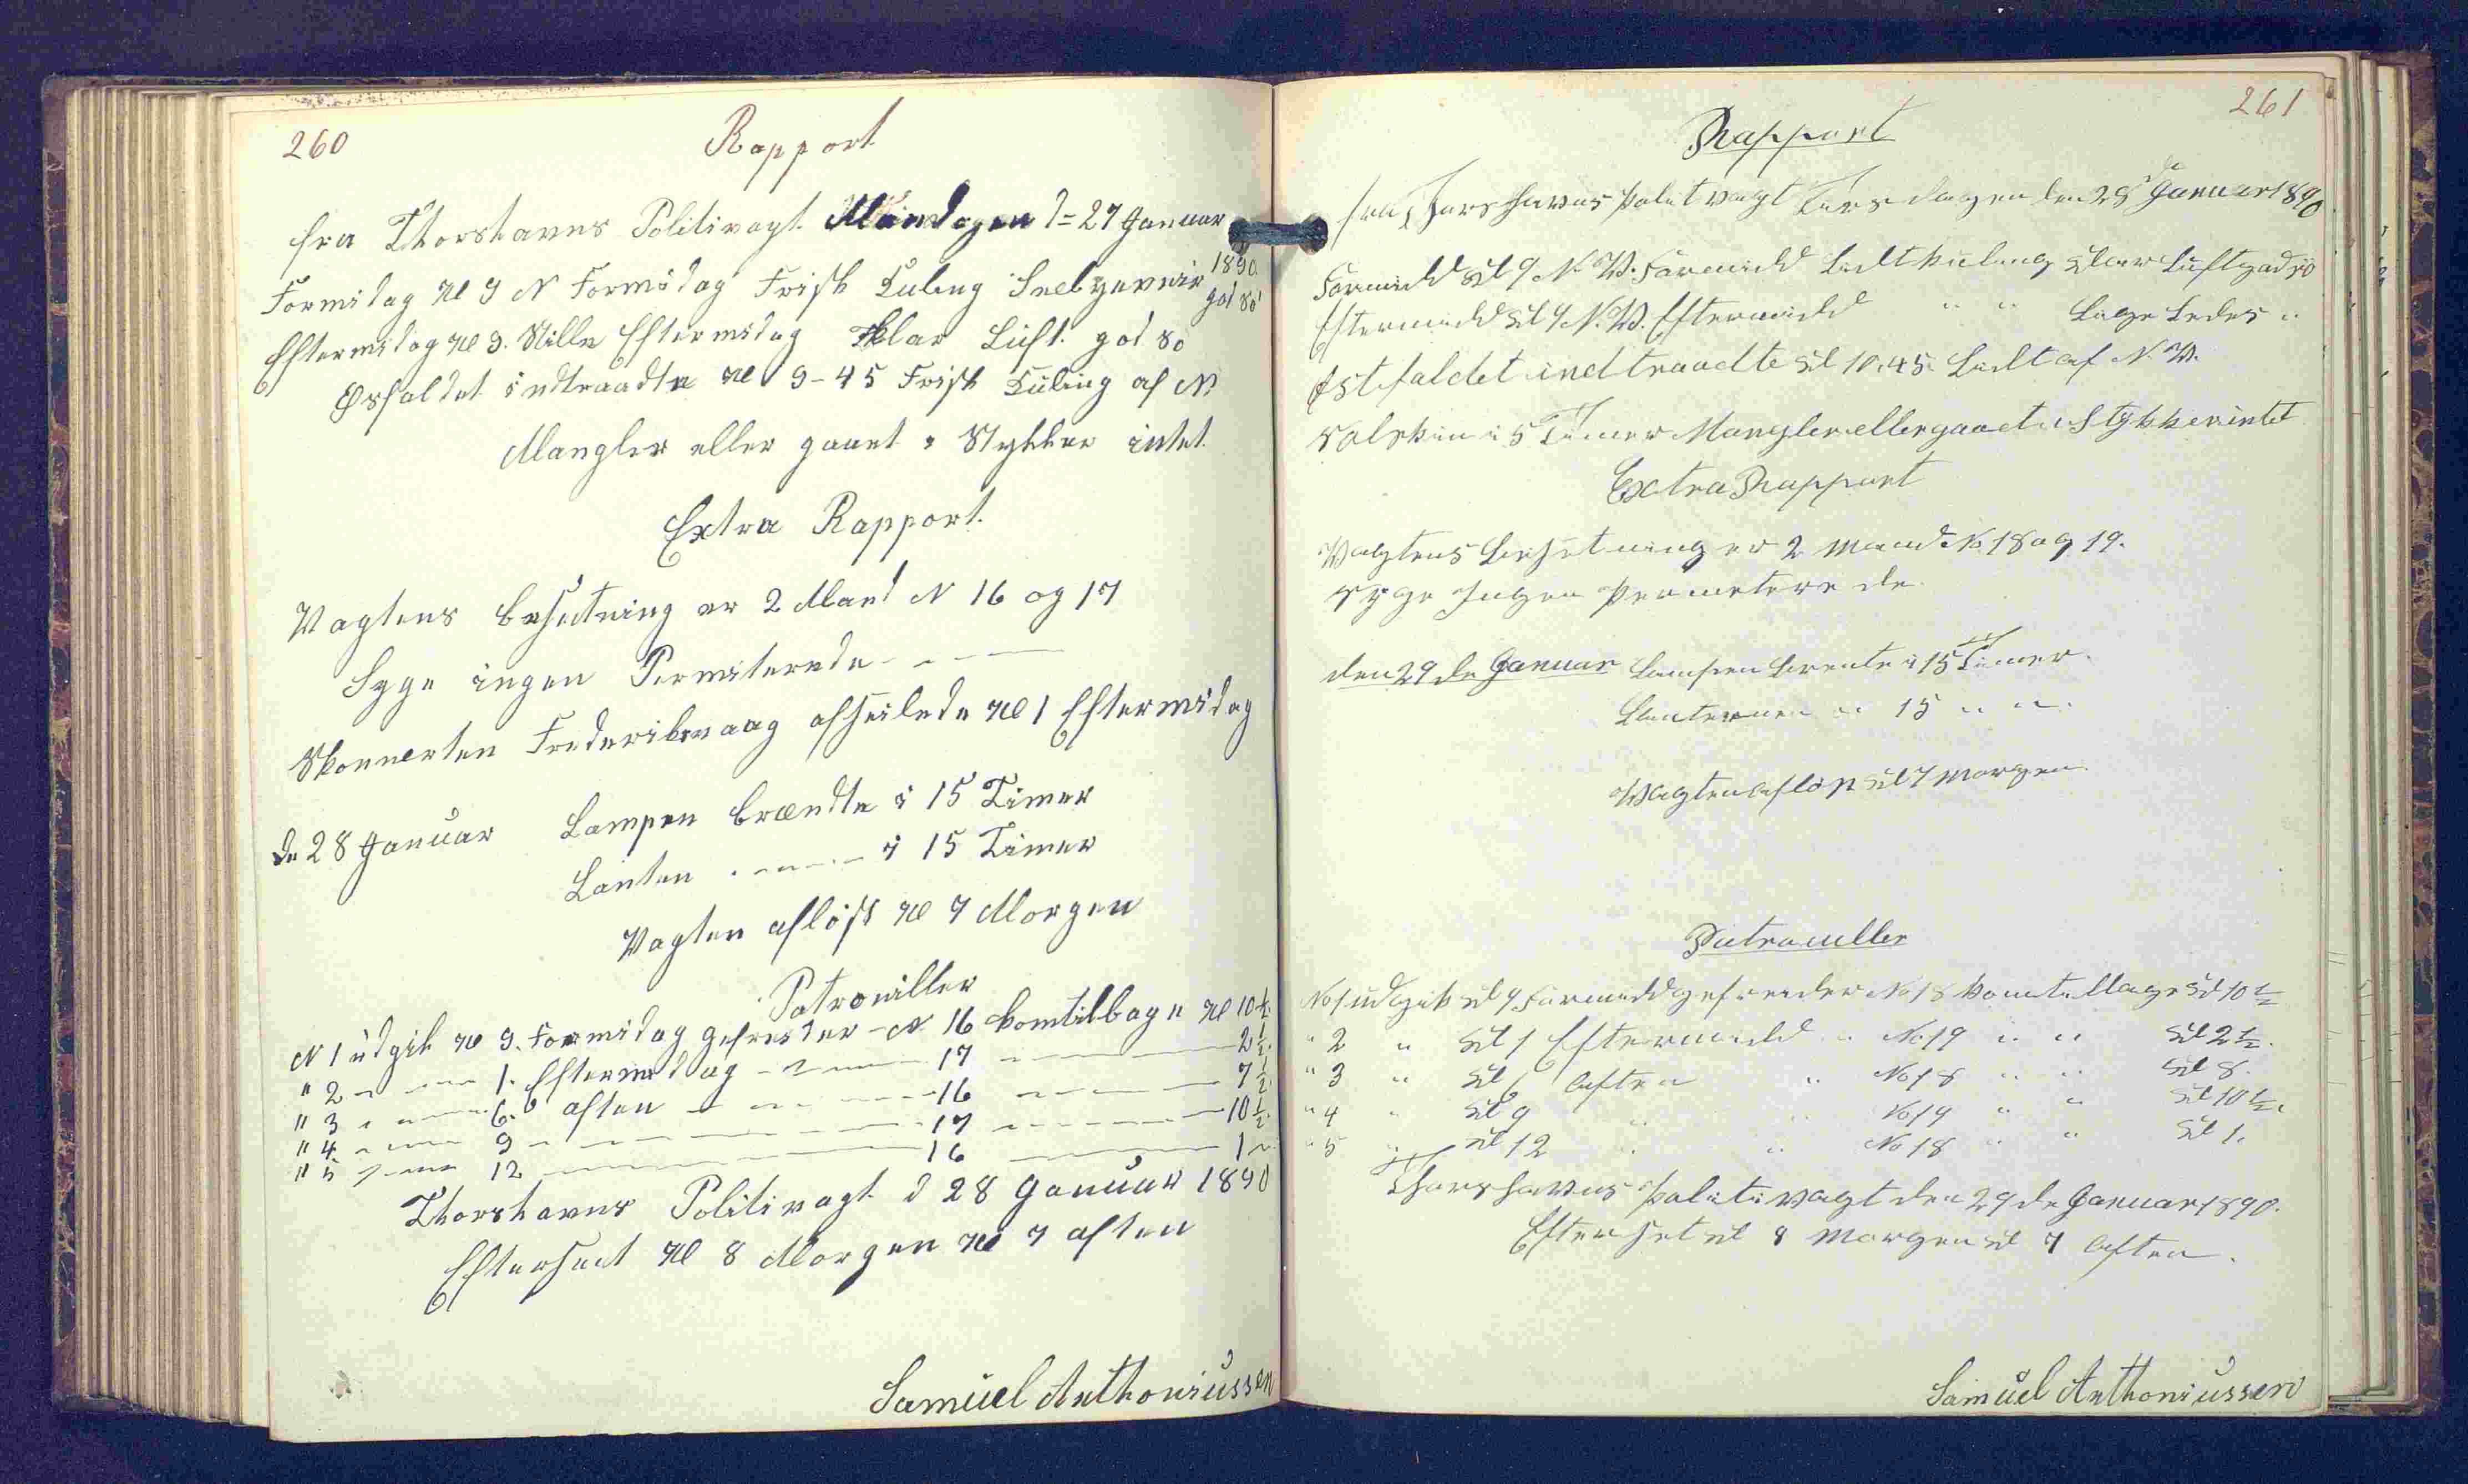 260
Rapport
fra Thorshavns Politivagt Mandagen d= 27 Januar
1890
Formidag Kl 9 N Formidag Frisk Kuling Snebyeveir god Sö
Eftermidag Kl 9. Stille Eftermidag Klar Luft god Sö
Østfaldet indtraadte Kl 9-45 Frisk Kuling af N
Mangler eller gaaet i Stykker intet
Extra Rapport.
Vagtens besetning er 2 Mand N 16 og 17
Syge ingen Permiterede
Skonnerten Frederiksvaag afseilede Kl 1 Eftermidag
De 28 Januar Lampen brændte i 15 Timer
Lanten i 15 Timer
Vagten aflöst Kl 7 Morgen
Patrouiller
N 1 udgik Kl 9. Formidag gefreider N 16 komtilbage Kl 10½
" 2 1. Eftermidag 17 2½
" 3 6. aften 16 7½
" 4 9 17 10½
" 5 12 16 1
Thorshavns Politivagt d 28 Januar 1890
Efterseet Kl 8 Morgen Kl 7 aften
Samuel Anthoniussen
261
Rapport
fra Thorshavns Politvagt Tirsdagen den 28de Januar 1890
Formidd Kl 9 N.W. Formidd Lidt Kuling Klar Luft god Sö
Eftermidd Kl 9 N.W. Eftermidd " " Lige Ledes "
Østfaldet indtraadte Kl 10.45. Lidt af N.W.
Solskin i 5 Timer Mangler eller gaaet i Stykker intet
Extra Rapport
Vagtens Besetning er 2 Mand No 18 og 19.
Syge Ingen Permeterede
den 29de Januar Lampen brente i 15 Timer.
Lanternen " 15 " "
Vagten aflöst Kl 7 Morgen.
Patrouller
No 1 udgik Kl 9 Formidd gefreider No 18 kom tilbage Kl 10½
" 2 " Kl 1 Eftermidd " No 19 " " Kl 2½.
" 3 " Kl 6 Aften " No 18 " " Kl 8.
" 4 " Kl 9 " " No 19 " " Kl 10½.
" 5 " Kl 12 " " No 18 " " Kl 1.
Thorshavns Politivagt den 29de Januar 1890.
Efterset Kl 8 Morgen Kl 7 Aften.
Samuel Anthoniussen